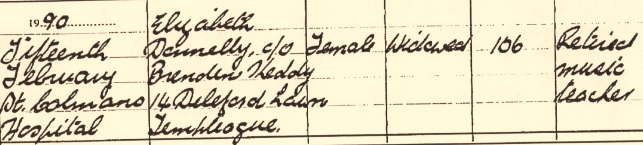 1990 Elizabeth
Fifteenth Donnelly, c/o Female Widowed 106 Retired
February Brenden Keddy music
St. Colmans 14 Deleford Lawn teacher
Hospital Templeogue.